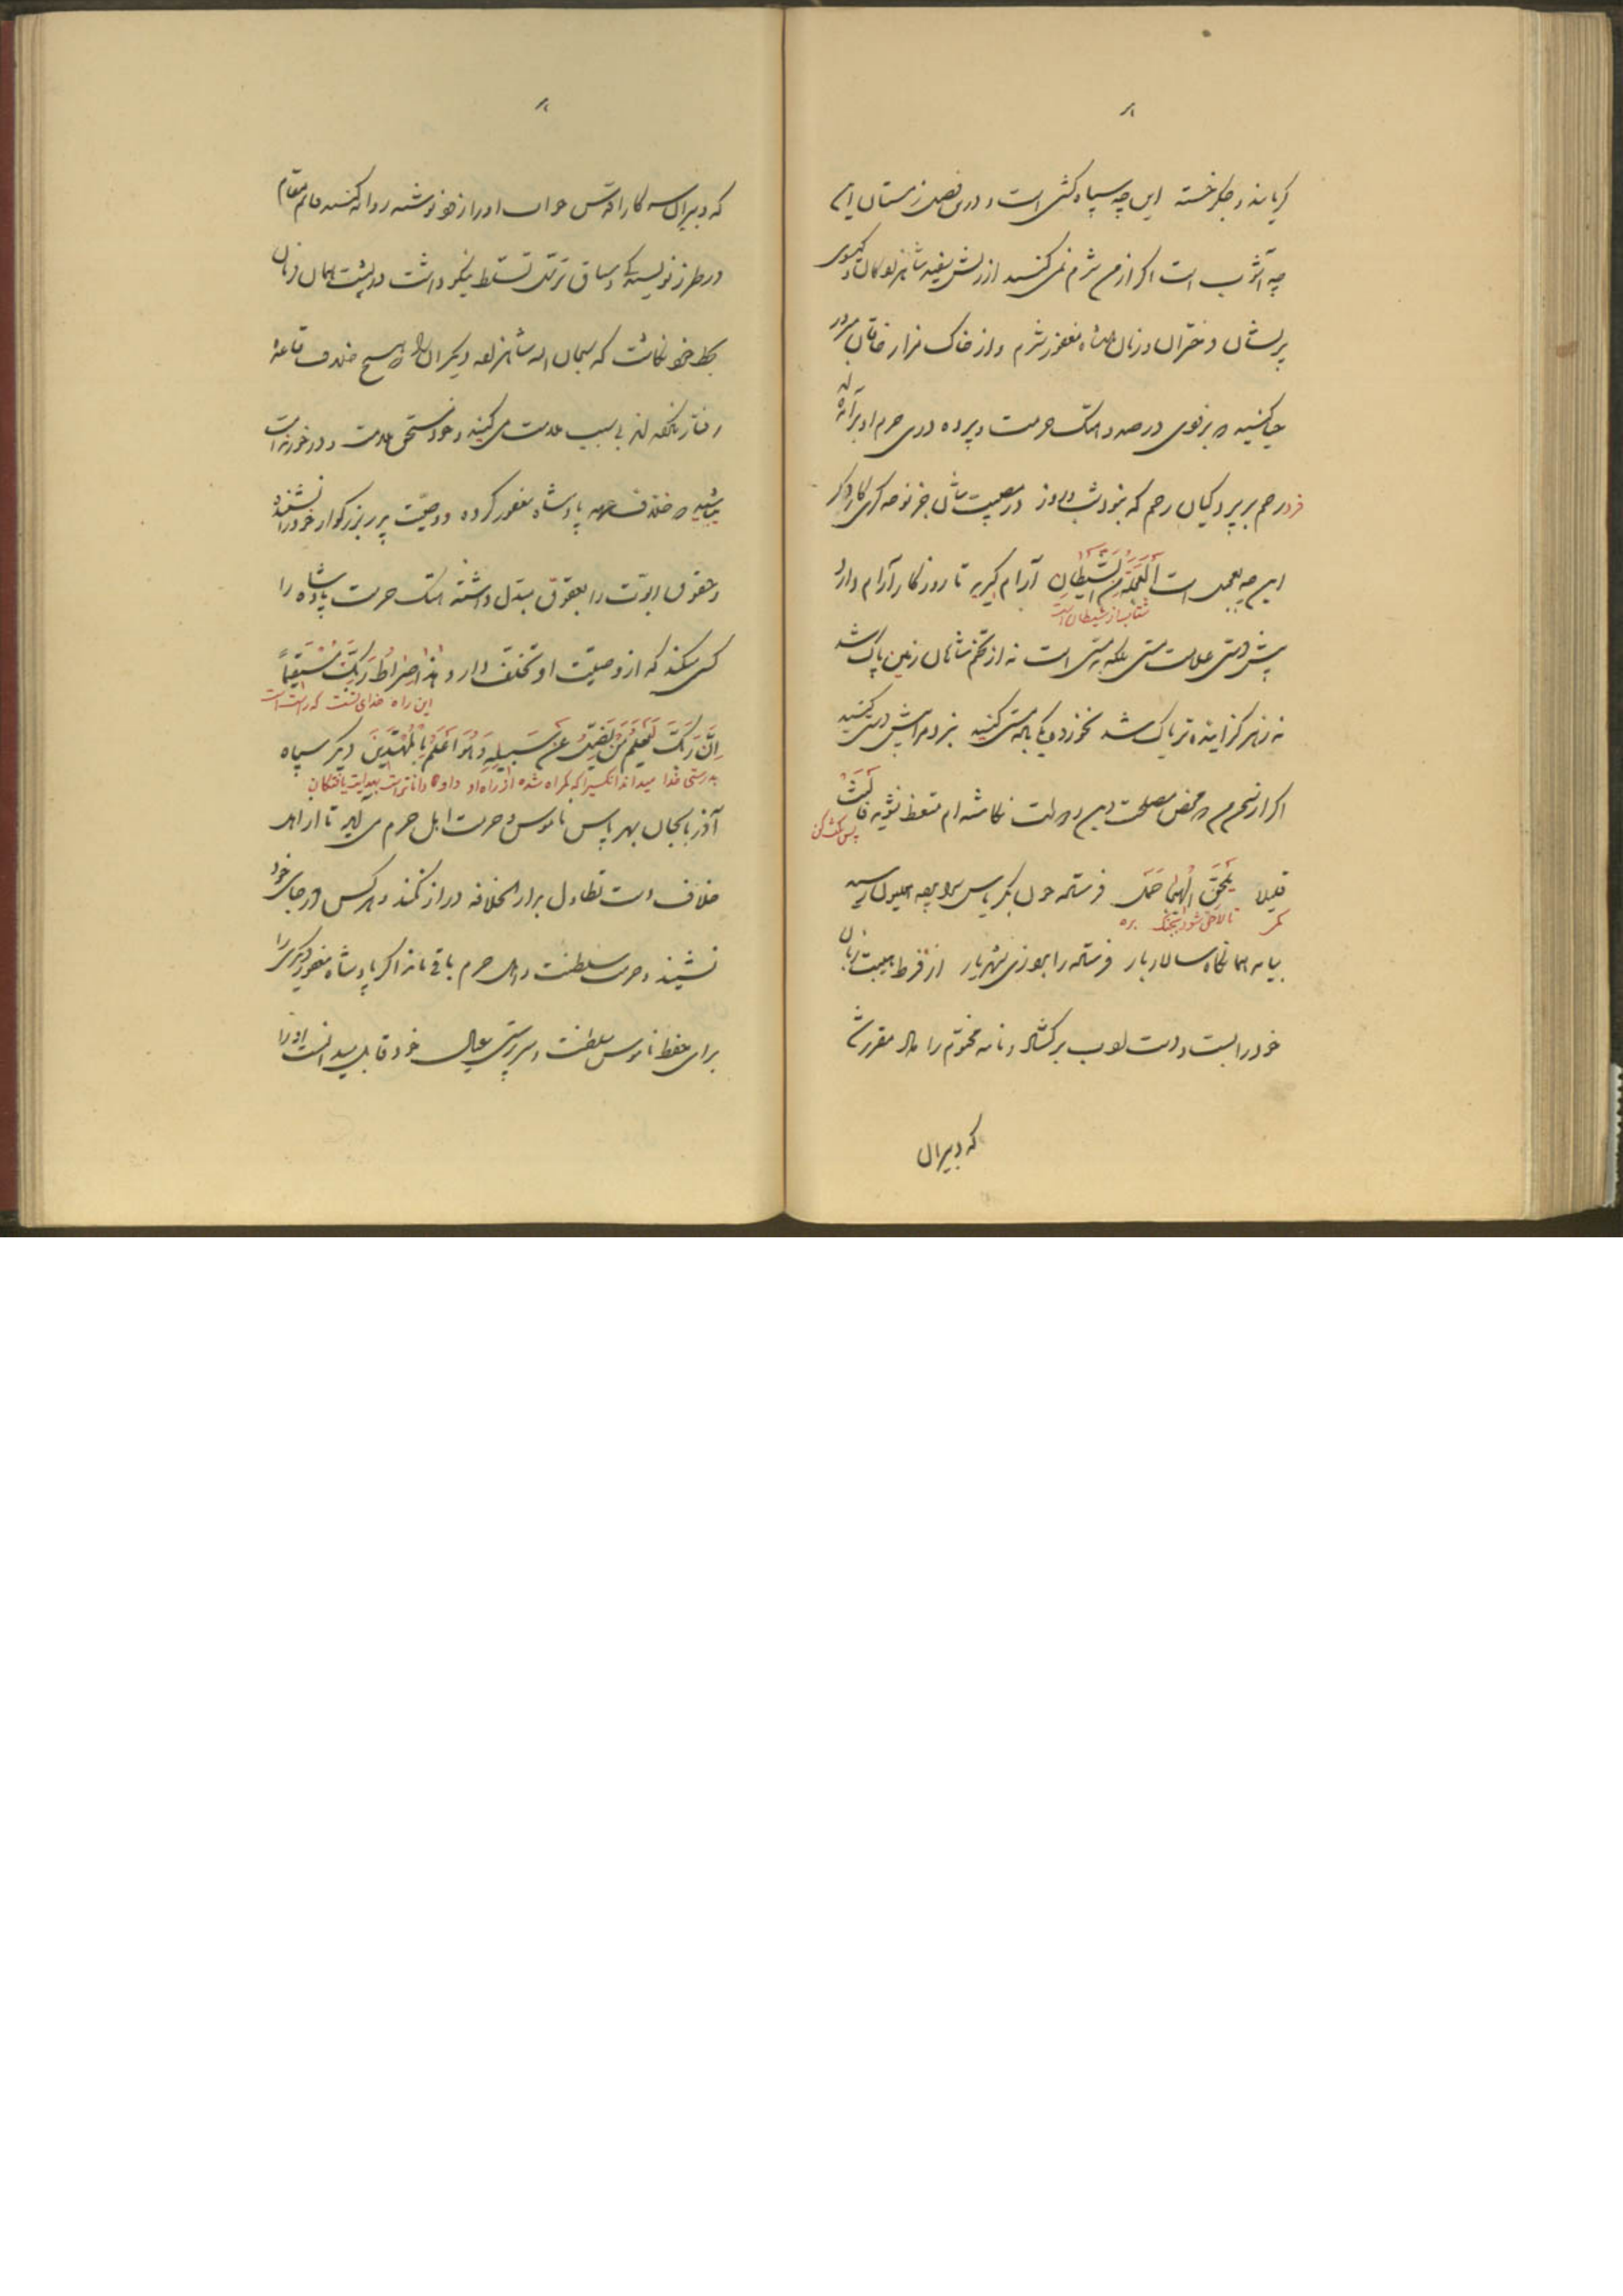 گریانند و جگر خسته این چه سپاه کشی است و درین فصل زمستان این
چه آشوب است اگر از من شرم نمی کنید از ریش سفید شاهزادگان و گیسوی
پریشان دختران و زنان شاه مغفور شرم و از خاک مزار خاقان مبرور
حیا کنید در صدد هتک حرمت و پرده دری حرم او برآمده
خود رحم بر پردگیان رحم که بخود شب و روز در مصیبت شان جز نوحه گری کار دگر
این چه عجله است اَلعَجَلَةُ مِنَ الشَّیطانِ آرام گیرید تا روزگار آرام دارد
شتاب از شیطان است
پیش دستی علامت مستی بلکه پستی است نه از تخم شان زمین پاک شد
نه زهر گزاینده تریاک شد
اگر از سخن من محض مصلحت دین و دولت نگاشته ام متعظ نشوید فالبَث
پس مکث کن
قلیلا یَلحَقِ الهَیجا حَمَل فرستاده چون
کمی تا لاحق شود بجنگ بره
بیامد همانگاه سالار بار فرستاده را شهریار از فرط هیبت زبان
خود را بست و دست ادب برگشاد و نامه مختوم را داد مقرر شد
که دبیران
که دبیران سرکار اقدس جواب او را از خود نوشته روانه کنند قائم مقام
در طرز نویسندگی و سیاق ترسل تسلط نیکو داشت در پشت همان فرمان
بخط خود نگاشت که سبحان الله شاهزاده دیگران را هیچ خلاف قاعده
رفتار نکرده اند بی سبب ملامت می کنید و خود مستحق ملامت و در خور غرامت
میباشید خلاف عهد پادشاه مغفور کرده وصیت پدر بزرگوار خود را نشنیده
و حقوق ابوت را بعقوق مبدل داشته هتک حرمت پادشاه را
کسی میکند که از وصیت او تخلف دارد هٰذا صِراطُ رَبِّکَ مُستَقیماً
این راه خدای تست که راست است
اِنَّ رَبَّکَ یَعلَمُ مَن یَضِلُّ عَن سَبیلِهِ وَ هُوَ اَعلَمُ بِالمُهتَدینَ دیگر سپاه
بدرستی خدا میداند آنکسی را که گمراه شده از راه او و او دانا تر است بهدایت یافتگان
آذربایجان بهر پاس ناموس و حرمت اهل حرم می آید تا از اهل
خلاف دست تطاول بدار الخلافه دراز نکنند و هر کس در جای خود
نشیند و حرمت سلطنت و اهل حرم باقی ماند اگر پادشاه مغفور دیگری را
برای حفظ ناموس سلطنت و سرپرستی عیال خود قابل میدانست او را